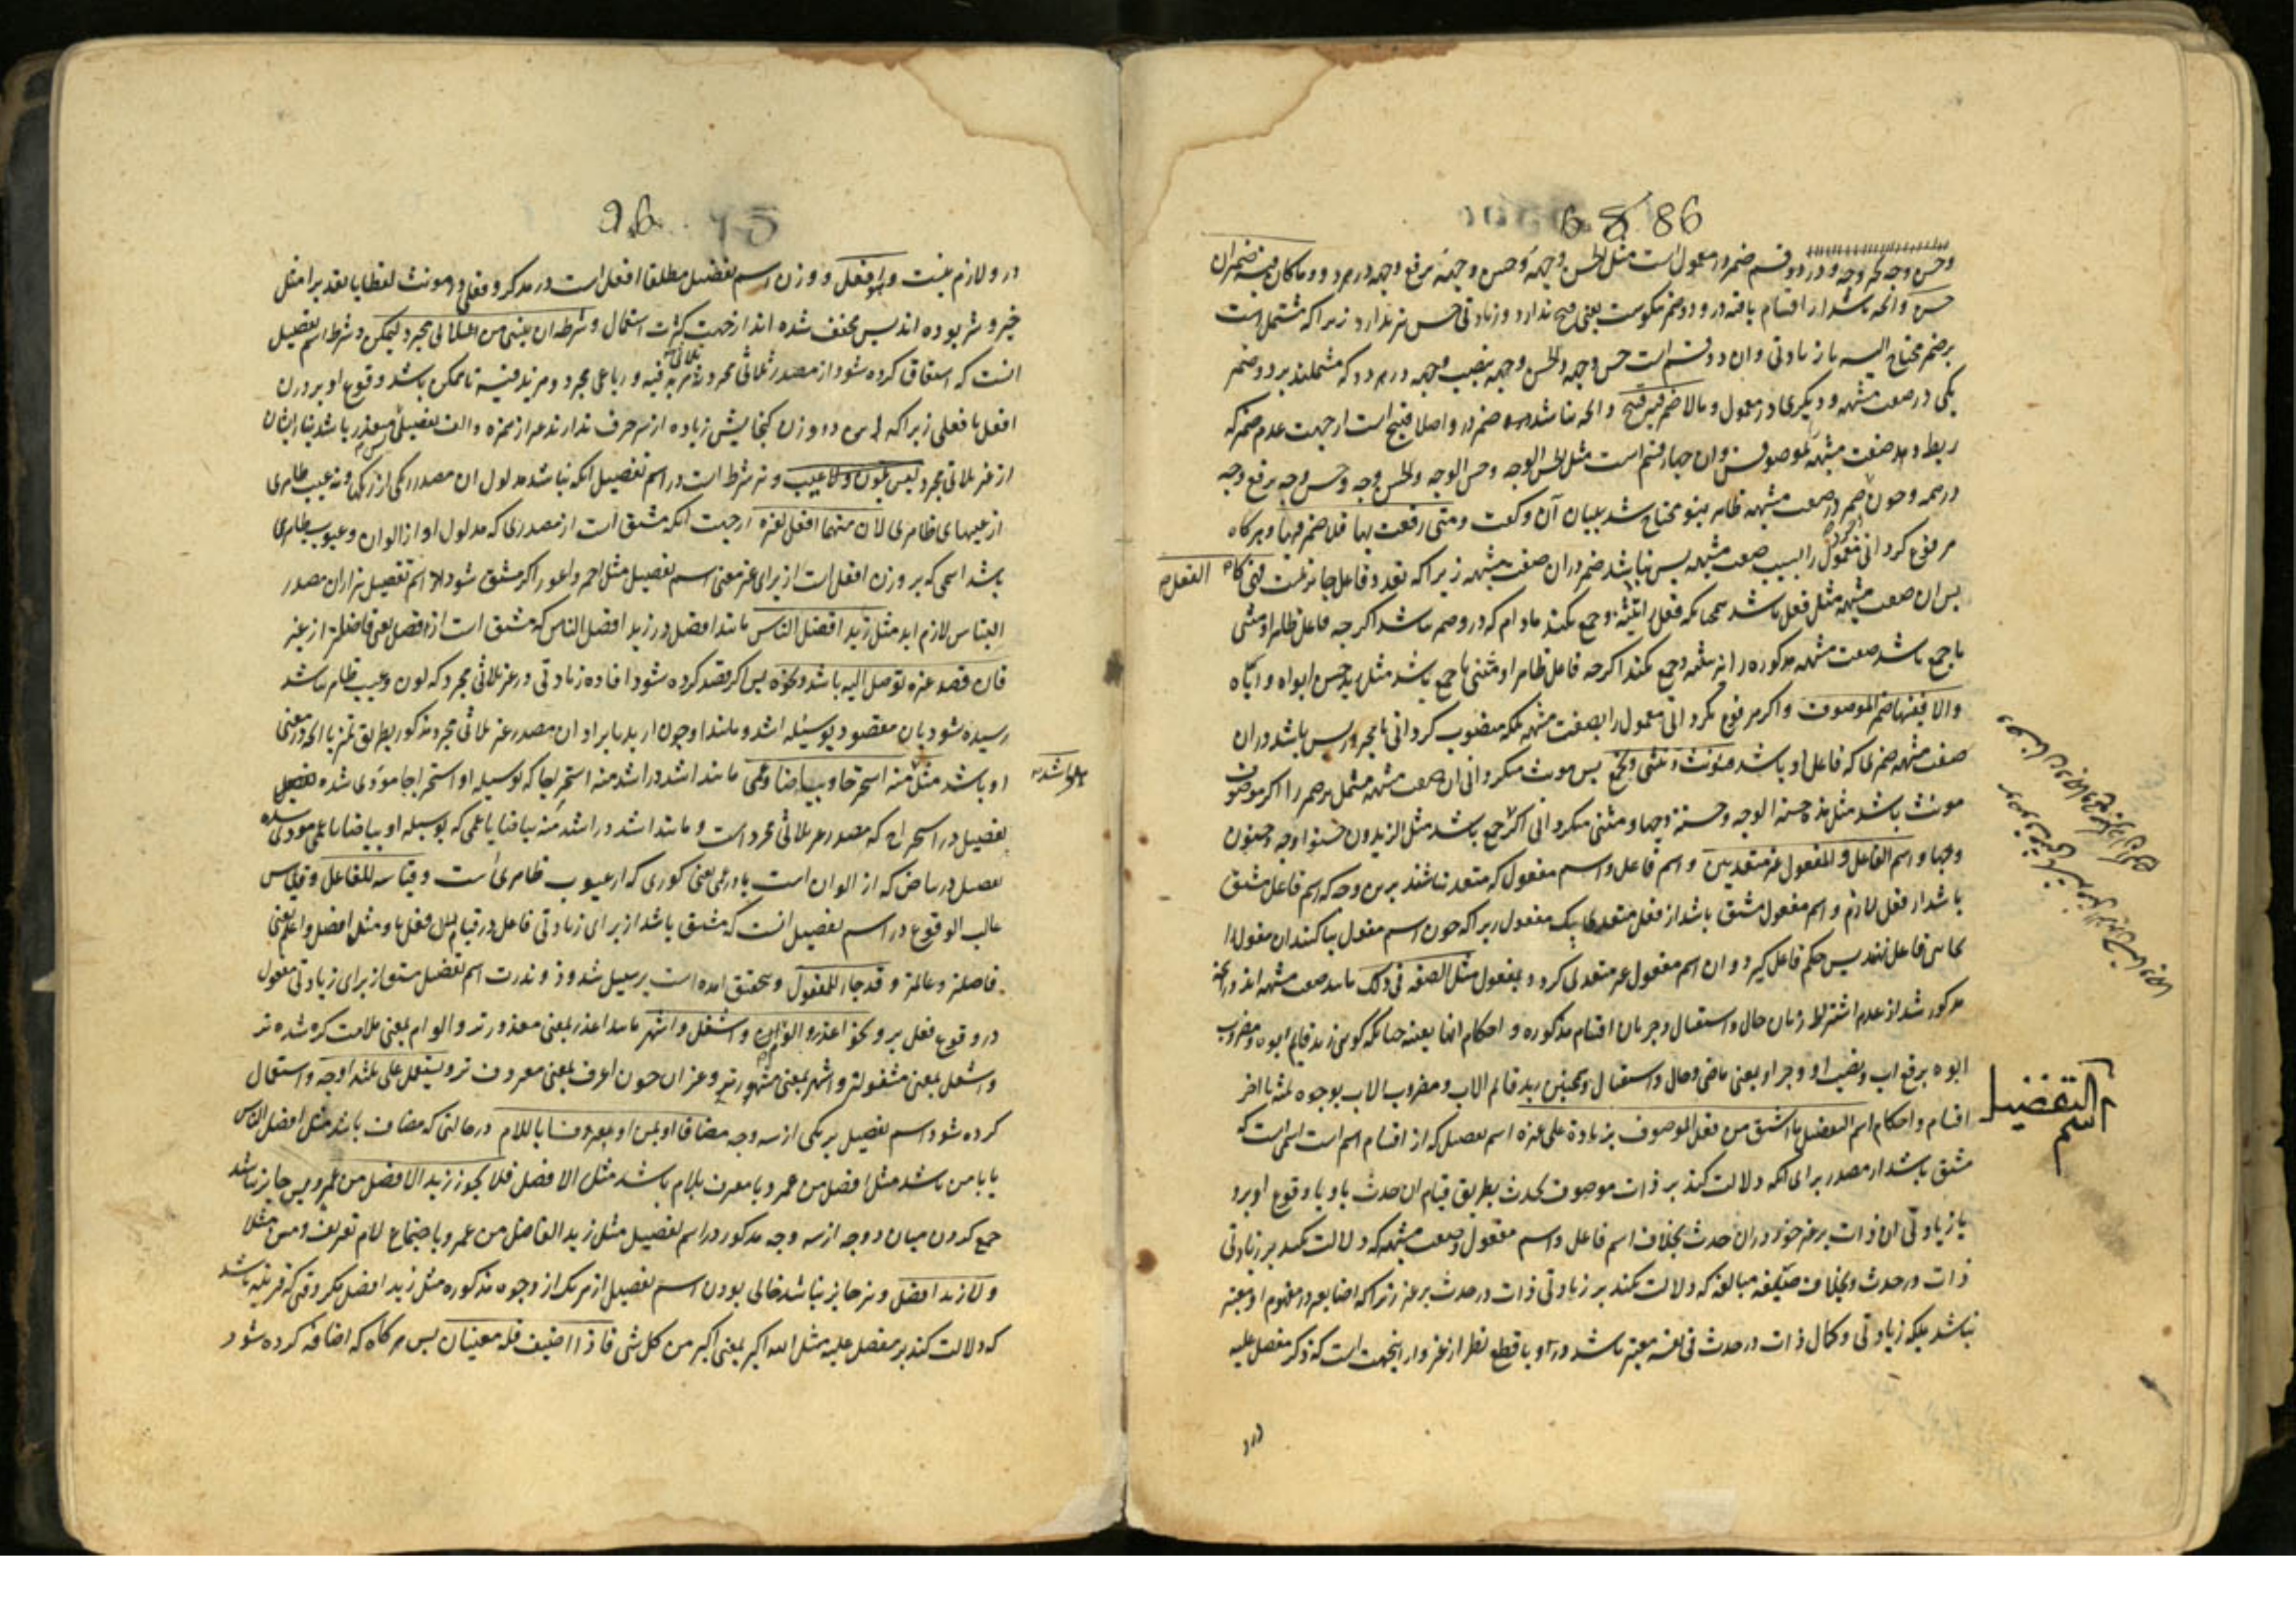 6 8 86
وحسن وجه كحر وجه و در دو قسم ضمير در معمول است مثل الحسن وجهه و حسن وجهه برفع وجهه در هر دو و ما كان فيه ضميران
حسن و انچه باشد از اقسام يافته در و دو ضمير نيكوست يعنى قبح ندارد و زيادتى حسن نيز ندارد زيرا كه مشتمل است
بر ضمير محتاج اليه با زيادتى و ان دو قسم است حسن وجهه و الحسن وجهه بنصب وجهه در هر دو كه مشتملند بر دو ضمير
يكى در صفت مشبهه و ديگرى در معمول و ما لا ضمير فيه قبيح و انچه نباشد ضمير در و اصلا قبيح است از جهت عدم ضمير كه
ربط دهد صفت مشبهه بموصوف و ان چهار قسم است مثل الحسن الوجه و حسن الوجه و الحسن وجه و حسن وجه برفع وجه
در همه و چون ضمير در صفت مشبهه ظاهر نبود محتاج شد ببيان آن و گفت و متى رفعت بها فلا ضمير فيها و هرگاه
مرفوع گردانى معمول را بسبب صفت مشبهه پس نباشد ضمير در ان صفت مشبهه زيرا كه تعدد فاعل جايز نيست فهى كالفعل
پس ان صفت مشبهه مثل فعل باشد همچنانكه فعل را تثنيه و جمع نكنند مادام كه در و ضمير نباشد اگرچه فاعل ظاهر او مثنى
يا جمع باشد صفت مشبهه مذكوره را نيز تثنيه و جمع نكنند اگرچه فاعل ظاهر او مثنى يا جمع باشد مثل زيد حسن ابواه و اباه
والا ففيها ضمير الموصوف و اگر مرفوع نگردانى معمول را بصفت مشبهه بلكه منصوب گردانى يا مجرور پس باشد در ان
صفت مشبهه ضميرى كه فاعل او باشد فتؤنث و تثنى و تجمع پس مونث ميگردانى ان صفت مشبهه مشتمل بر ضمير را اگر موصوف
مونث باشد مثل هند حسنة الوجه و حسنة وجها و مثنى ميگردانى اگر جمع باشد مثل الزيدون حسنوا وجه و حسنون
وجها و اسم الفاعل و المفعول غير متعديين و اسم فاعل و اسم مفعول كه متعدى نباشند برين وجه كه اسم فاعل مشتق
باشد از فعل لازم و اسم مفعول مشتق باشد از فعل متعدى بيك مفعول زيرا كه چون اسم مفعول بنا كنند ان مفعول را
بجاى فاعل نهند پس حكم فاعل گيرد و ان اسم مفعول غير متعدى گردد بمفعول مثل الصفة فى ذلك مانند صفت مشبهه اند در انچه
مذكور شد از عدم اشتراط زمان حال و استقبال و جريان اقسام مذكوره و احكام انها بعينه چنانكه گوئى زيد قايم ابوه و مضروب
ابوه برفع اب و نصب او و جر او يعنى ماضى و حال و استقبال و همچنين زيد قائم الاب و مضروب الاب بوجوه ثلثه تا اخر
اقسام و احكام اسم التفضيل ما اشتق من فعل لموصوف بزيادة على غيره اسم تفضيل كه از اقسام اسم است اسمى است كه
مشتق باشد از مصدر براى انكه دلالت كند بر ذات موصوف بحدث بطريق قيام ان حدث باو يا وقوع او برو
با زيادتى ان ذات بر غير خود در ان حدث بخلاف اسم فاعل و اسم مفعول و صفت مشبهه كه دلالت نكند بر زيادتى
ذات در حدث و بخلاف صيغه مبالغه كه دلالت نكند بر زيادتى ذات در حدث بر غير زيرا كه اضافه در مفهوم او معتبر
نباشد بلكه زيادتى و كمال ذات در حدث فى نفسه معتبر باشد در او با قطع نظر از غير و از اينجهت است كه ذكر مفضل عليه
اسم التفضيل
در و
96 75
در و لازم نيست و هو افعل و وزن اسم تفضيل مطلقا افعل است در مذكر و فعلى در مونث لفظا يا تقديرا مثل
خير و شر بوده اند پس مخفف شده اند از جهت كثرت استعمال و شرطه ان يبنى من الثلاثى مجرد ليمكن و شرط اسم تفضيل
انست كه اشتقاق كرده شود از مصدر ثلاثى مجرد نه ثلاثى مزيد فيه و رباعى مجرد و مزيد فيه تا ممكن باشد وقوع او بر وزن
افعل يا فعلى زيرا كه اين دو وزن گنجايش زياده از سه حرف ندارند غير از همزه و الف تفضيل پس متعذر باشد بناء ايشان
از غير ثلاثى مجرد ليس بلون و لا عيب و نيز شرط است در اسم تفضيل انكه نباشد مدلول ان مصدر رنگى از رنگها و نه عيب ظاهرى
از عيبهاى ظاهرى لان منهما افعل لغيره از جهت انكه مشتق است از مصدرى كه مدلول او از الوان و عيوب ظاهرى
باشد اسمى كه بر وزن افعل است از براى غير معنى اسم تفضيل مثل احمر و اعور اگر مشتق شود اسم تفضيل نيز از ان مصدر
التباس لازم ايد مثل زيد افضل الناس مانند افضل در زيد افضل الناس كه مشتق است از فضل يعنى فاضلتر از غير
فان قصد غيره توصل اليه باشد و نحوه پس اگر قصد كرده شود افاده زيادتى در غير ثلاثى مجرد كه لون و عيب ظاهر باشد
رسيده شود بان مقصود بوسيله اشد و مانند او چون ازيد بايراد ان مصدر غير ثلاثى مجرد مذكور بطريق تميز يا انچه در معنى
او باشد مثل اشد منه استخراجا و بياضا و عمى مانند اشد در اشد منه استخراجا كه بوسيله او استخراجا مودى شده
تفضيل در استخراج كه مصدر غير ثلاثى مجرد است و مانند اشد در اشد منه بياضا يا عمى كه بوسيله او بياضا يا عمى مودى شده
تفضيل در بياض كه از الوان است يا در عمى يعنى كورى كه از عيوب ظاهرى است و قياسه للفاعل و قياس
غالب الوقوع در اسم تفضيل انست كه مشتق باشد از براى زيادتى فاعل در قيام فعل باو مثل افضل و اعلم يعنى
فاضلتر و عالمتر و قد جاء للمفعول و بتحقيق امده است بر سبيل شذوذ و ندرت اسم تفضيل مشتق از براى زيادتى مفعول
در وقوع فعل برو نحو اعذر و الوم و اشغل و اشهر مانند اعذر بمعنى معذورتر و الوم بمعنى ملامت كرده شده تر
و اشغل بمعنى مشغولتر و اشهر بمعنى مشهورتر و غير ان چون اعرف بمعنى معروف تر و يستعمل على ثلثة اوجه و استعمال
كرده شود اسم تفضيل بر يكى از سه وجه مضافا او بمن او معرفا باللام در حالتى كه مضاف باشد مثل افضل الناس
يا با من باشد مثل افضل من عمرو يا معرف بلام باشد مثل الافضل فلا يجوز زيد الافضل من عمرو پس جايز نباشد
جمع كردن ميان دو وجه از سه وجه مذكور در اسم تفضيل مثل زيد الفاضل من عمرو باجتماع لام تعريف و من مثلا
و لا زيد افضل و نيز جايز نباشد خالى بودن اسم تفضيل از هر يك از وجوه مذكوره مثل زيد افضل مگر وقتى كه قرينه باشد
كه دلالت كند بر مفضل عليه مثل الله اكبر بمعنى اكبر من كل شى فاذا اضيف فله معنيان پس هرگاه كه اضافه كرده شود